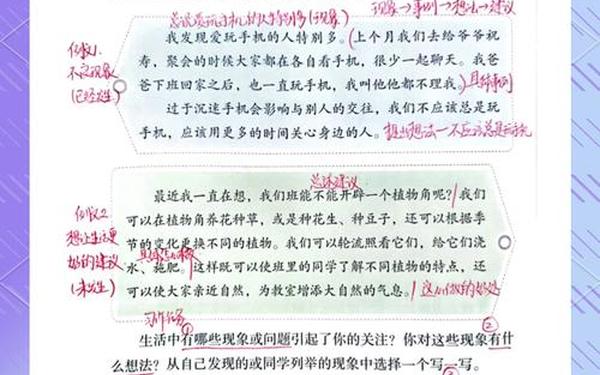 总说爱玩手机的人特别多(现象)
现象→事例→想法→建议
我发现爱玩手机的人特别多。上个月我们去给爷爷祝
寿，聚会的时候大家都在各自看手机，很少一起聊天。我爸
爸下班回家之后，也一直玩手机，我叫他他都不理我。
具体事例
过于沉迷手机会影响与别人的交往，我们不应该总是玩
手机，应该用更多的时间关心身边的人。
提出想法—不应该总是玩手机
例段1
不良现象
(已经发生)
总述建议
最近我一直在想，我们班能不能开辟一个植物角呢？我们
可以在植物角养花种草，或是种花生、种豆子，还可以根据季
节的变化更换不同的植物。我们可以轮流照看它们，给它们浇
水、施肥。这样既可以使班里的同学了解不同植物的特点，还
可以使大家亲近自然，为教室增添大自然的气息。
例段2
想让生活更
好的建议
(未发生)
习作任务
① ②
生活中有哪些现象或问题引起了你的关注？你对这些现象有什
么想法？从自己发现的或同学列举的现象中选择一个写一写。